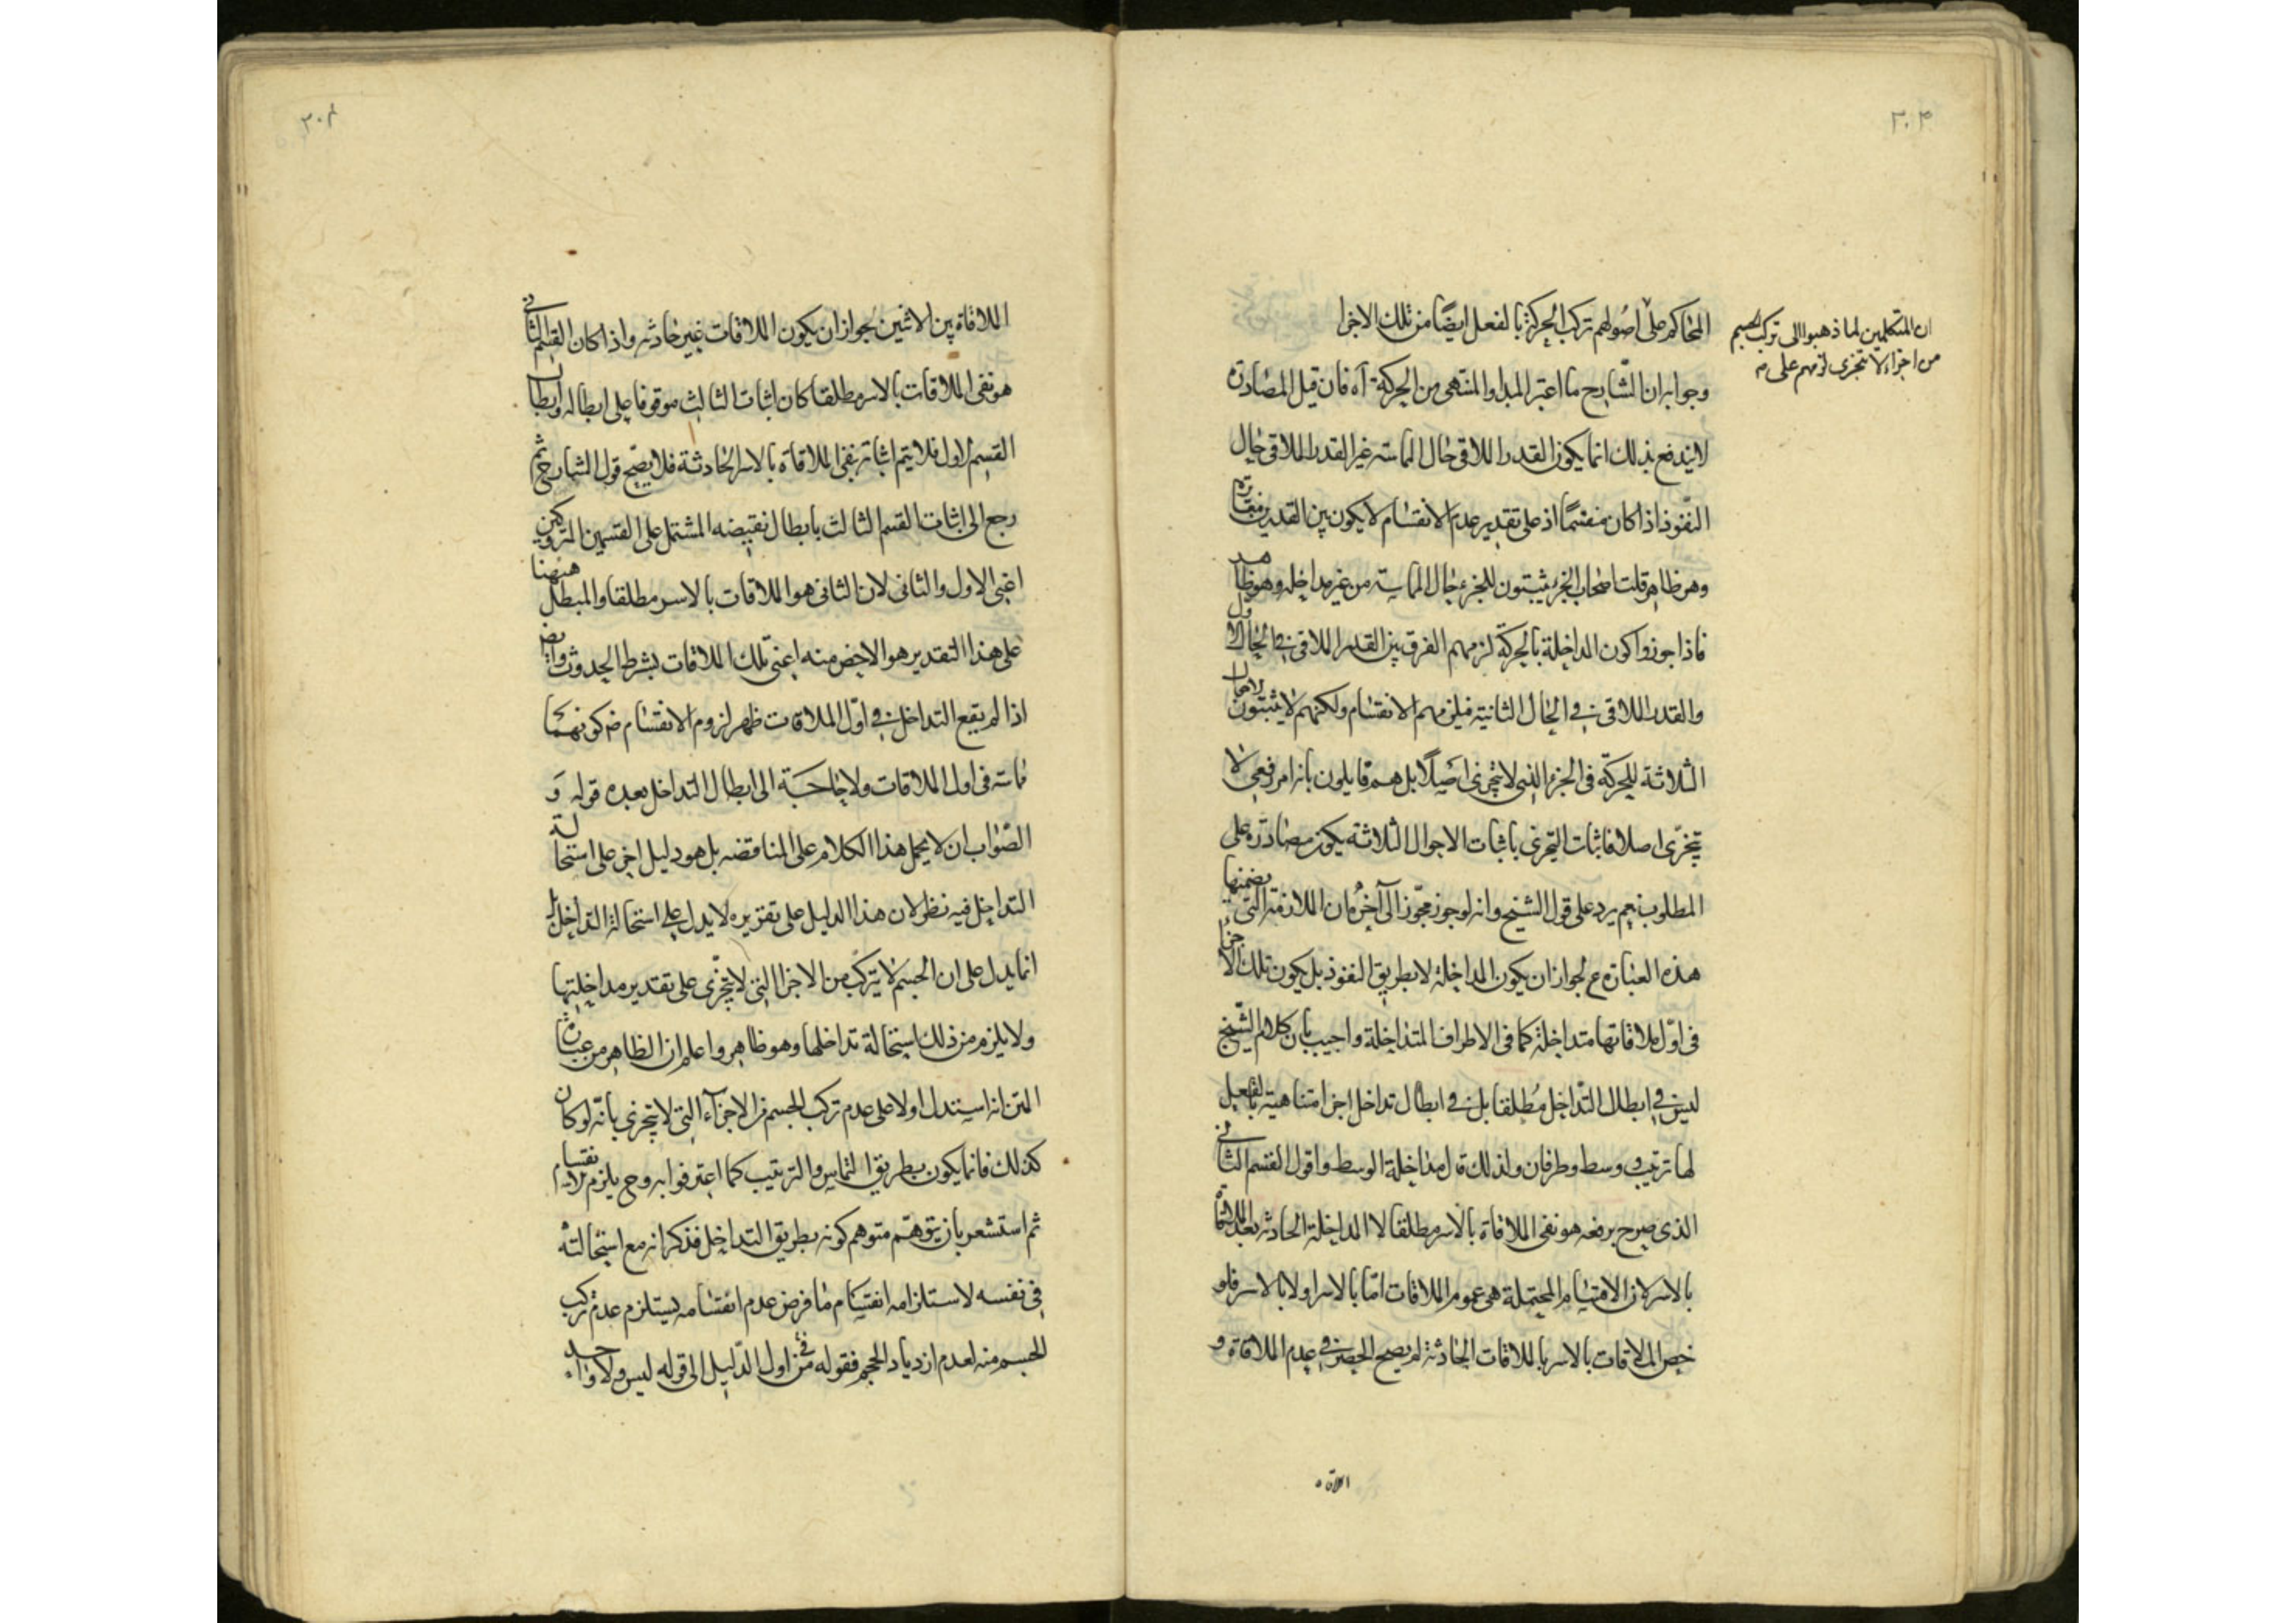 ٣٠٣
ان المتكلمين لما ذهبوا الى تركب الجسم
من اجزاء لا تتجزى لزمهم على
المحاكم على اصولهم تركب الحركة بالفعل ايضًا من تلك الاجزا
وجوابه ان الشارح ما اعتبر المبدا والمنتهى من الحركة آه فان قيل المصادرة
لا يندفع بذلك انما يكون القدر الملاقى حال المماسة غير القدر الملاقى حال
النفوذ اذا كان منقسمًا اذ على تقدير عدم الانقسام لا يكون بين القدرين مغايرة
وهو ظاهر قلت اصحاب الجزء يثبتون للجزء حال المماسة من غير مداخله وهو ظاهر
فاذا جوزوا كون المداخلة بالحركة لزمهم الفرق بين القدر الملاقى فى الحال الاول
والقدر الملاقى فى الحال الثانية فيلزمهم الانقسام ولكنهم لا يثبتون الاحوال
الثلاثة للحركة فى الجزء الذى لا يتجزى اصلًا بل هم قايلون بانه امر دفعى لا
يتجزى اصلا فاثبات التجزى باثبات الاحوال الثلاثة يكون مصادرة على
المطلوب نعم يرد على قول الشيخ وانه لو جوز مجوز الى آخره ان الملازمة التى يضمنها
هذه العبارة م لجواز ان يكون المداخلة لا بطريق النفوذ بل يكون تلك الاجزا
فى اول ملاقاتها متداخلة كما فى الاطراف المتداخلة واجيب بان كلام الشيخ
ليس فى ابطال التداخل مطلقا بل فى ابطال تداخل اجزا متناهية بالفعل
لها ترتيب ووسط وطرفان ولذلك قال مداخلة الوسط واقول القسم الثانى
الذى صرح برفعه هو نفى الملاقاة بالاسر مطلقا لا المداخلة الحادثه بعد الملاقاة
بالاسر لان الاقسام المحتملة هى عموم الملاقات اما بالاسر او لا بالاسر فلو
خص الملاقات بالاسر بالملاقات الحادثة لم يصح الحصر فى عدم الملاقاة و
الملاقاه
٣٠٤
الملاقاة بين الاثنين لجواز ان يكون الملاقات غير حادثه واذا كان القسم الثانى
هو نفى الملاقات بالاسر مطلقا كان اثبات الثالث موقوفا على ابطاله وابطال
القسم الاول فلا يتم اثباته بنفى الملاقاة بالاسر الحادثة فلا يصح قول الشارح ثم
رجع الى اثبات القسم الثالث بابطال نقيضه المشتمل على القسمين المتروكين
اعنى الاول والثانى لان الثانى هو الملاقات بالاسر مطلقا والمبطل ههنا
على هذا التقدير هو الاخص منه اعنى تلك الملاقات بشرط الحدوث وايضا
اذا لم يقع التداخل فى اول الملاقات ظهر لزوم الانقسام من كونهما
مماسة فى اول الملاقات ولا حاجة الى ابطال التداخل بعده قوله وَ
الصواب ان لا يحمل هذا الكلام على المناقضه بل هو دليل اخر على استحالة
التداخل فيه نظر لان هذا الدليل على تقريره لا يدل على استحالة التداخل بل
انما يدل على ان الجسم لا يتركب من الاجزا التى لا تتجزى على تقدير مداخلتها
ولا يلزم من ذلك استحالة تداخلها وهو ظاهر واعلم ان الظاهر من عبارة
المتن انه استدل اولا على عدم تركب الجسم من الاجزاء التى لا تتجزى بانه لو كان
كذلك فانما يكون بطريق التماس والترتيب كما اعترفوا به وح يلزم انقسامها
ثم استشعر بان يتوهم متوهم كونه بطريق التداخل فذكر انه مع استحالته
فى نفسه لاستلزامه انقسام ما فرض عدم انقسامه يستلزم عدم تركب
الجسم منه لعدم ازدياد الحجم فقوله فى من اول الدليل الى قوله ليس ولا واحد